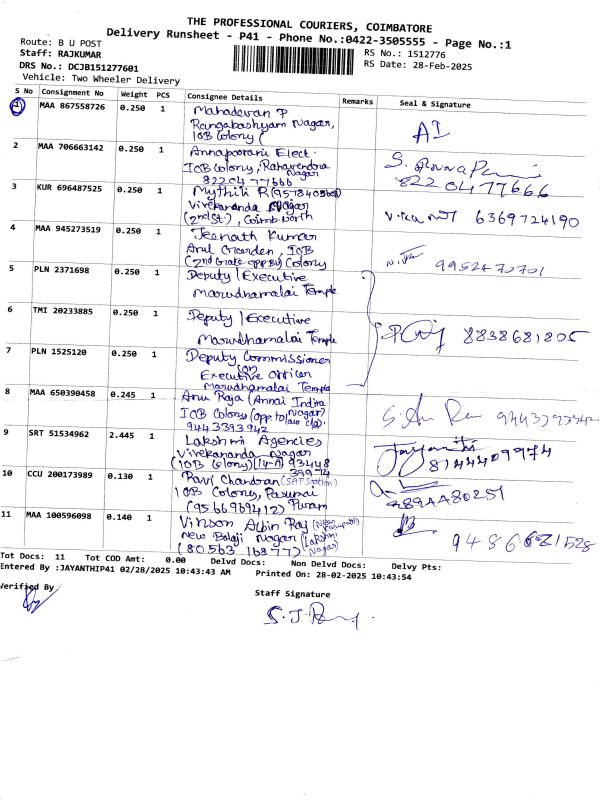 THE PROFESSIONAL COURIERS, COIMBATORE
Delivery Runsheet - P41 - Phone No.:0422-3505555 - Page No.:1
Route: B U POST
RS No.: 1512776
Staff: RAJKUMAR
RS Date: 28-Feb-2025
DRS No.: DCJB151277601
Vehicle: Two Wheeler Delivery
S No Consignment No Weight PCS Consignee Details Remarks Seal & Signature
1 MAA 867558726 0.250 1 Mahadevan P
Rangabashyam Nagar,
IOB Colony (
2 MAA 706663142 0.250 1 Annapoorani Elect.
IOB Colony, Nagar
82204 77666
8220477666
3 KUR 696487525 0.250 1 Mythili R
Vivekananda Nagar
(2nd St), Coimb North
6369724190
4 MAA 945273519 0.250 1 Jeenath Kumar
Arul Garden, IOB
(2nd Gate opp BU) Colony
5 PLN 2371698 0.250 1 Deputy / Executive
Marudhamalai Temple
6 TMI 20233885 0.250 1 Deputy / Executive
Marudhamalai Temple
8838681805
7 PLN 1525120 0.250 1 Deputy Commissioner
(or)
Executive Officer
Marudhamalai Temple
8 MAA 650390458 0.245 1 Anu Raja (Annai Indira
IOB Colony (opp. to Nagar)
9443393942
9 SRT 51534962 2.445 1 Lakshmi Agencies
Vivekananda Nagar
(IOB Colony) (14-A) 93448
39974
8144409974
10 CCU 200173989 0.130 1 Ravi Chandran
IOB Colony, Pasumai
(9566969412) Puram
11 MAA 100596098 0.140 1 Vinson Albin Raj
New Balaji Nagar (Lakshmi
(80563 16877) Nagar)
9486621528
Tot Docs: 11 Tot COD Amt: 0.00 Delvd Docs: Non Delvd Docs: Delvy Pts:
Entered By :JAYANTHIP41 02/28/2025 10:43:43 AM Printed On: 28-02-2025 10:43:54
Verified By
Staff Signature